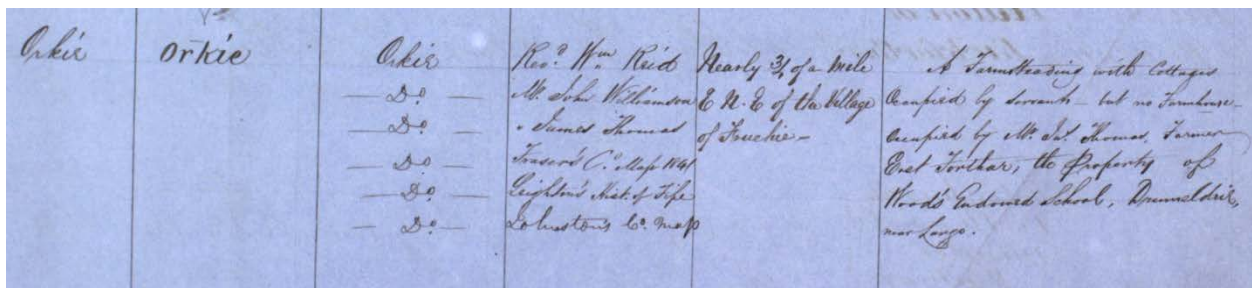 Orkie
Orkie
Orkie
— Do. —
— Do. —
— Do. —
— Do. —
— Do. —
Revd. Wm. Reid
Mr. John Williamson
" James Thomas
Fraser's Co. Map 1841
Leighton's Hist. of Fife
Johnston's Co. Map
Nearly 3/4 of a Mile
E.N.E of the Village
of Freuchie —
A Farmsteading with Cottages
Occupied by Servants — but no Farmhouse —
Occupied by Mr. Jas. Thomas, Farmer
East Forthar, the Property of
Wood's Endowed School, Drumeldrie,
near Largo.